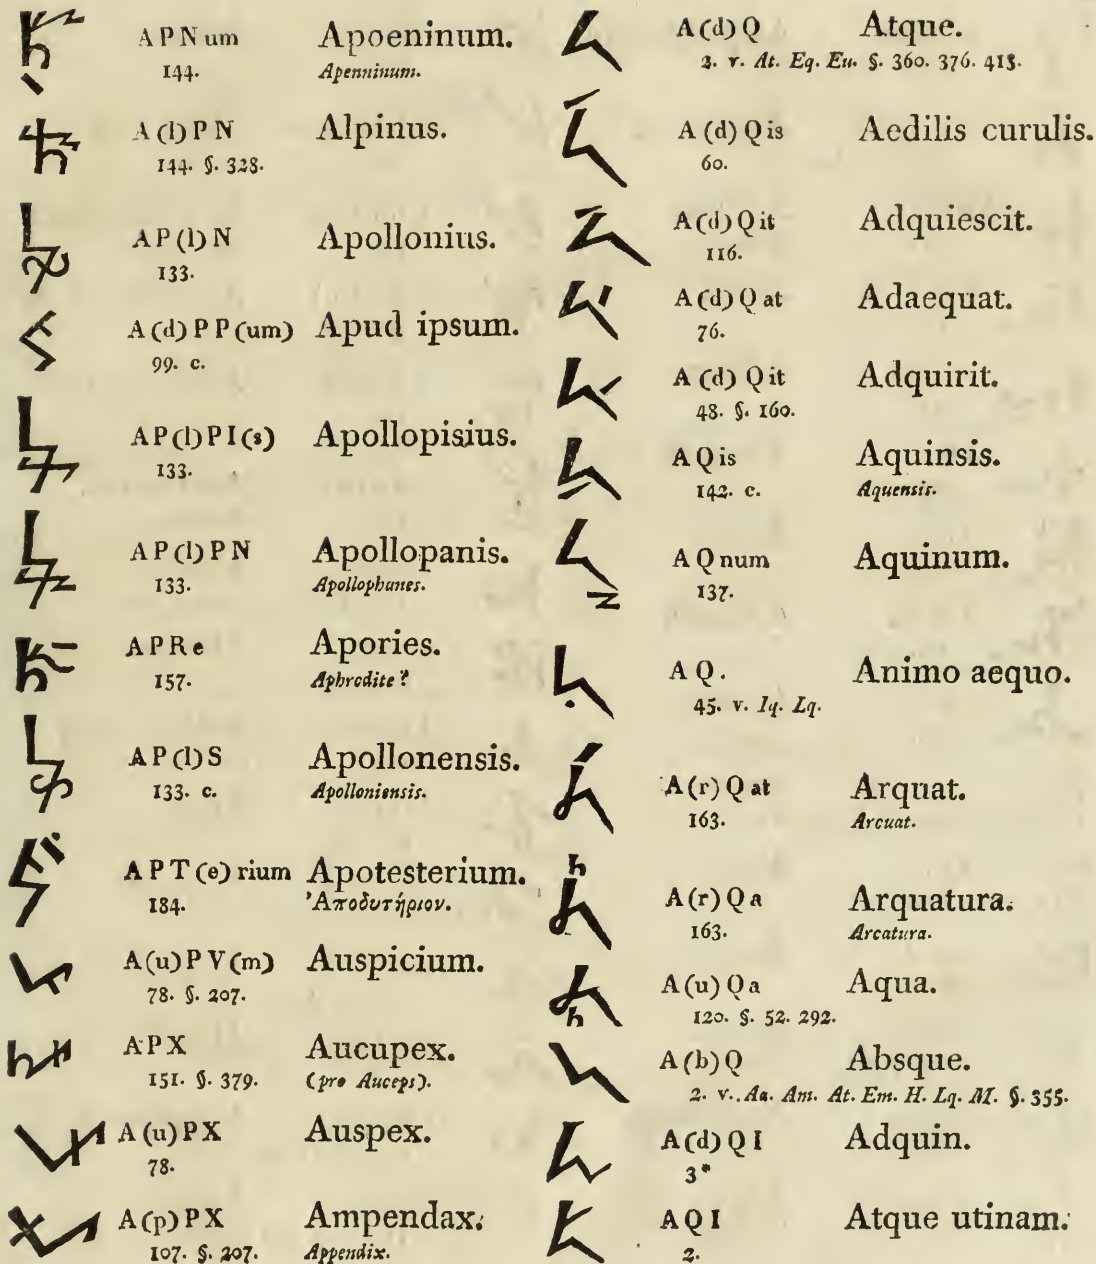 A P N um Apoeninum.
144. Apenninum.
A (l) P N Alpinus.
144. §. 328.
A P (l) N Apollonius.
133.
A (d) P P (um) Apud ipsum.
99. c.
A P (l) P I (s) Apollopisius.
133.
A P (l) P N Apollopanis.
133. Apollophanes.
A P R e Apories.
157. Aphrodite?
A P (l) S Apollonensis.
133. c. Apolloniensis.
A P T (e) rium Apotesterium.
184. Ἀποδυτήριον.
A (u) P V (m) Auspicium.
78. §. 207.
A P X Aucupex.
151. §. 379. (pro Auceps).
A (u) P X Auspex.
78.
A (p) P X Ampendax.
107. §. 207. Appendix.
A (d) Q Atque.
2. v. At. Eq. Eu. §. 360. 376. 413.
A (d) Q is Aedilis curulis.
60.
A (d) Q it Adquiescit.
116.
A (d) Q at Adaequat.
76.
A (d) Q it Adquirit.
48. §. 160.
A Q is Aquinsis.
142. c. Aquensis.
A Q num Aquinum.
137.
A Q. Animo aequo.
45. v. Iq. Lq.
A (r) Q at Arquat.
163. Arcuat.
A (r) Q a Arquatura.
163. Arcatura.
A (u) Q a Aqua.
120. §. 52. 292.
A (b) Q Absque.
2. v. Aa. Am. At. Em. H. Lq. M. §. 355.
A (d) Q I Adquin.
3*
A Q I Atque utinam.
2.